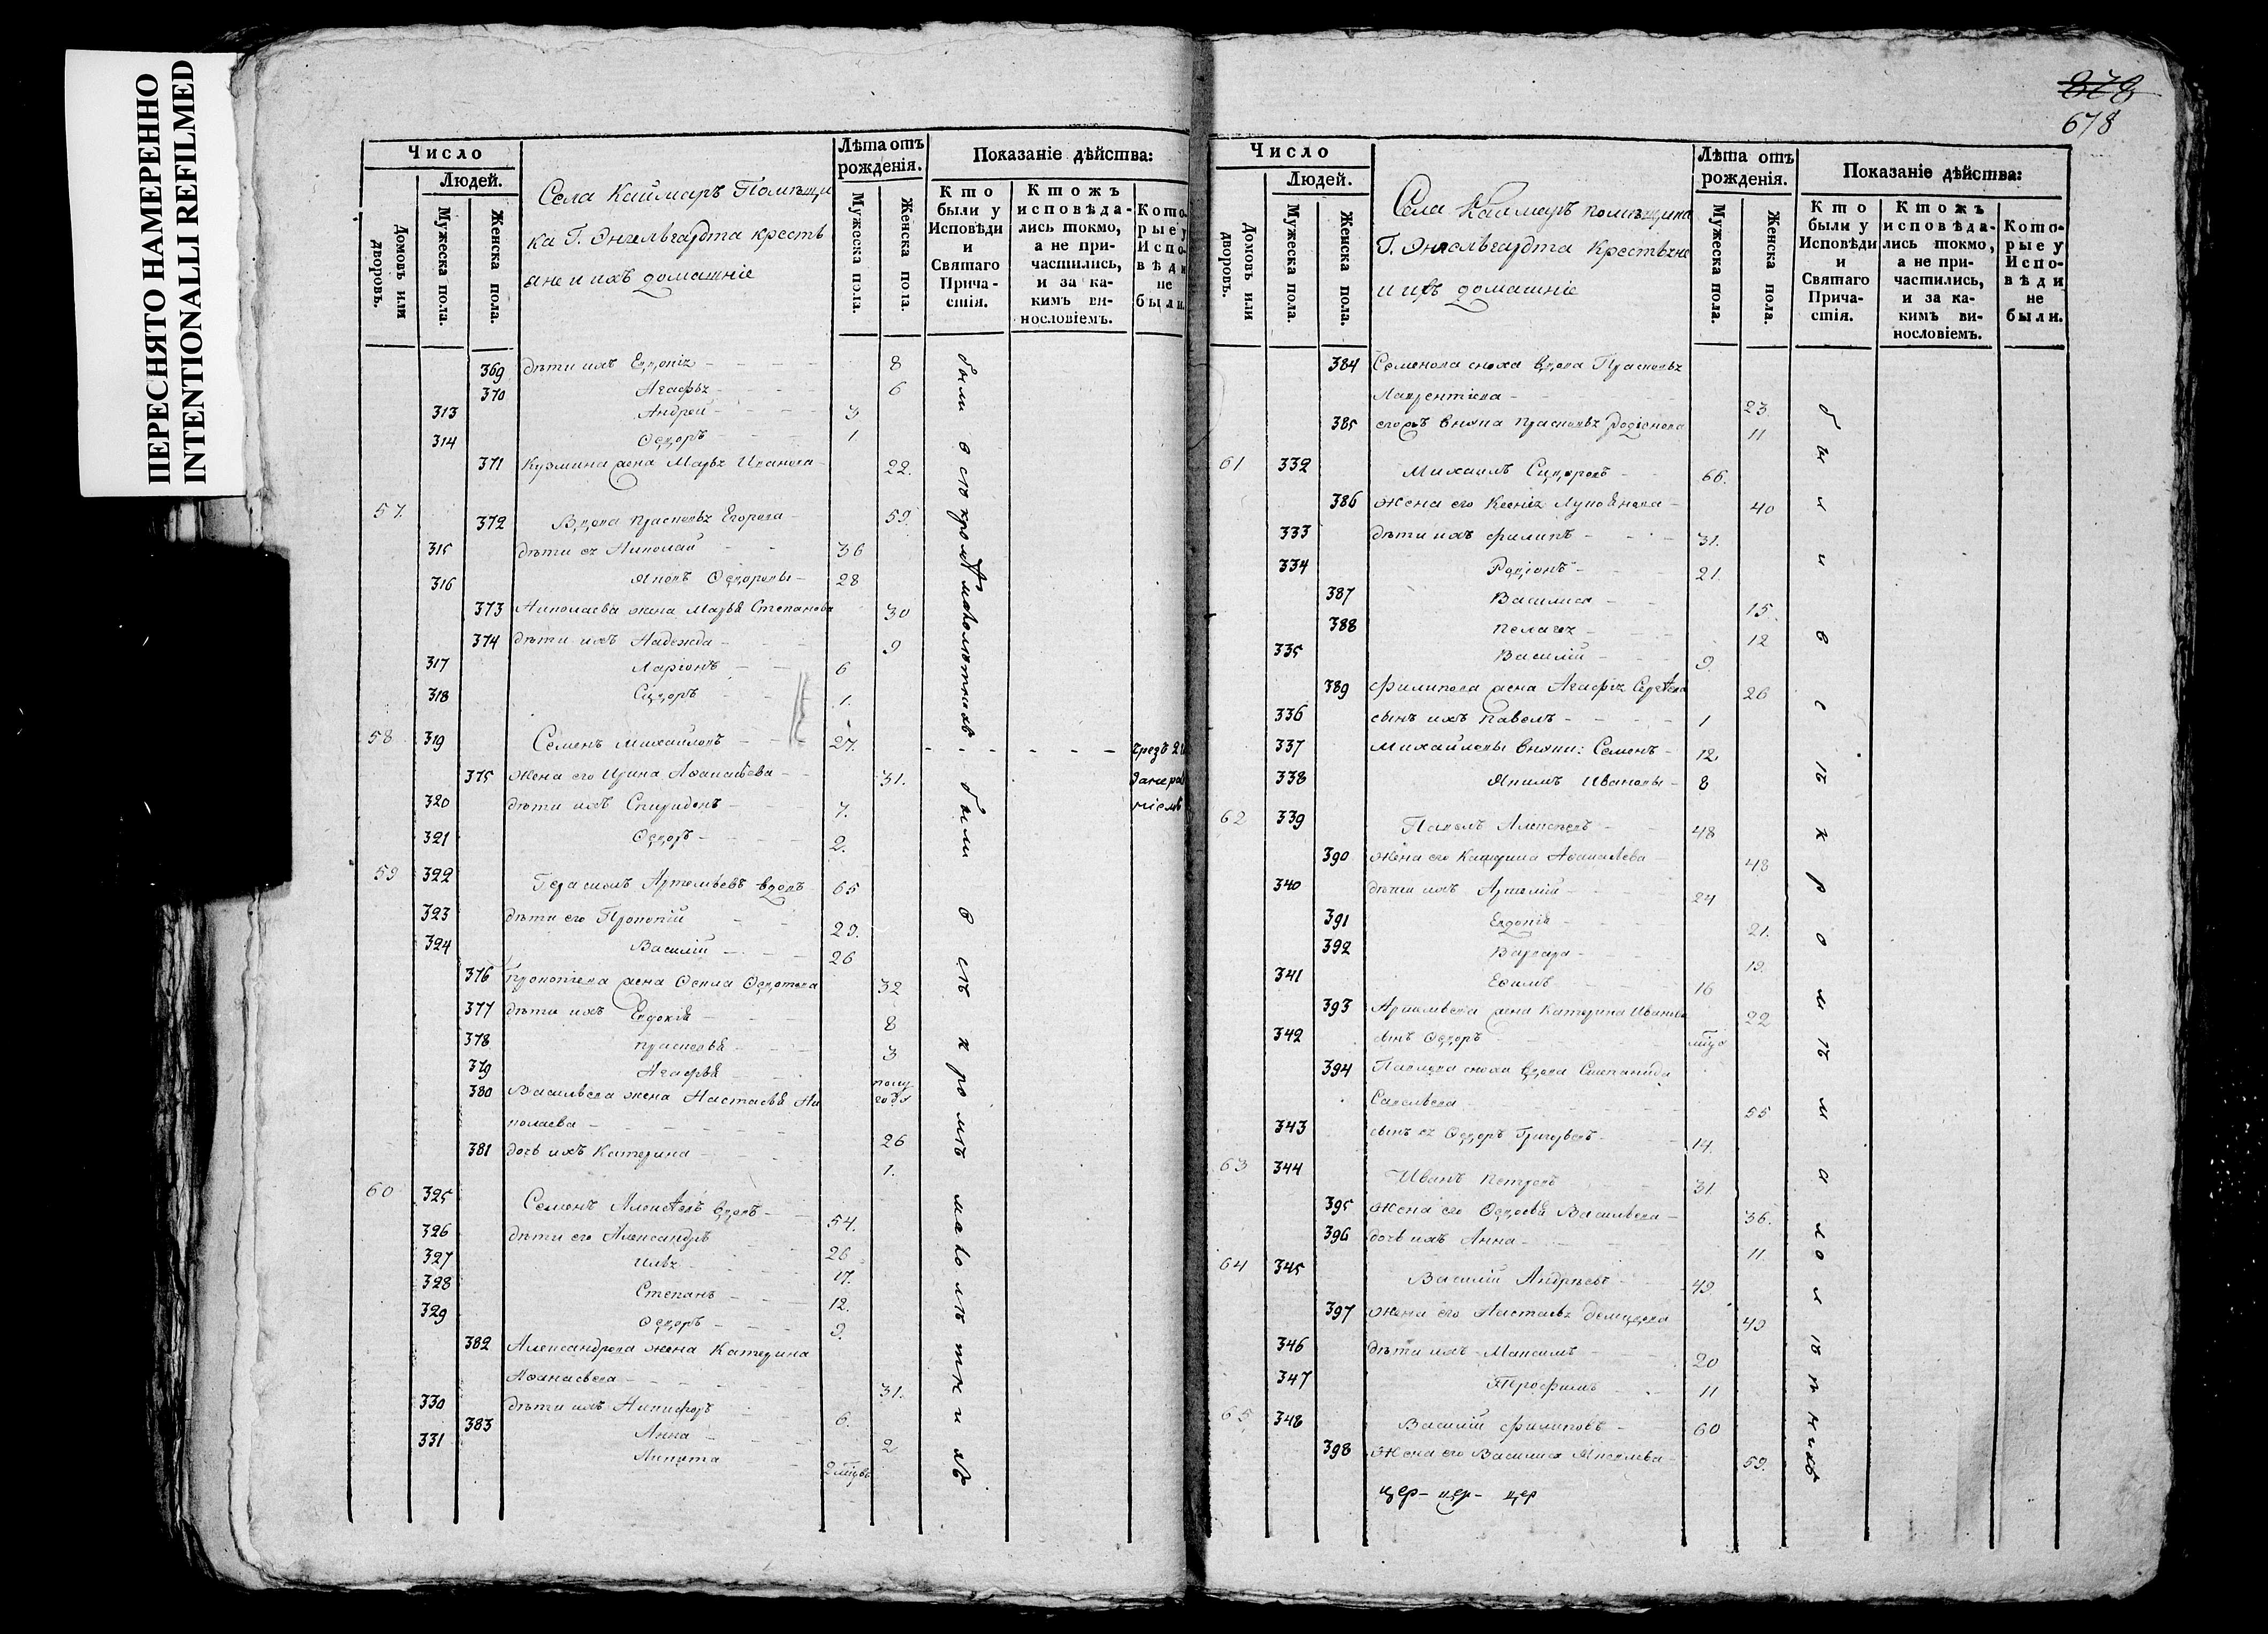 ПЕРЕСНЯТО НАМЕРЕННО
INTENTIONALLI REFILMED
Число
Людей.
Домовъ или дворовъ.
Мужеска пола.
Женска пола.
Села Каймаръ Помѣщи
ка Г. Энгельгардта кресть
яне и ихъ домашніе
Лѣта отъ рожденія.
Мужеска пола.
Женска пола.
Показаніе дѣйства:
Кто были у Исповѣди и Святаго Прича-стія.
Ктожъ исповѣда-лись токмо, а не при-частились, и за ка-кимъ ви-нословіемъ.
Кото-рые у Испо-вѣди не были.
369 дѣти ихъ Евдокія 8
370 Агафья 6
313 Андрей 3
314 Ѳедоръ 1
371 Кузмина жена Марья Иванова 22.
57. 372 Вдова Прасковья Егорова 59.
315 дѣти ея Николай 36
316 Яковъ Ѳедоровы 28
373 Николаева жена Марья Степанова 30
374 дѣти ихъ Надежда 9
317 Ларіонъ 6
318 Сидоръ 1.
58 319 Семенъ Михайловъ 27.
375 жена его Ирина Аѳанасьева 31.
320 дѣти ихъ Спиридонъ 7.
321 Ѳедоръ 2.
59 322 Герасимъ Артемьевъ вдовъ 65
323 дѣти его Прокопій 29.
324 Василій 26
376 Прокопіева жена Ѳекла Ѳедотова 32
377 дѣти ихъ Евдокія 8
378 Прасковья 3
379 Агафья полу года
380 Васильева жена Настасья Ни
колаева 26
381 дочь ихъ Катерина 1.
60 325 Семенъ Алексѣевъ вдовъ 54.
326 дѣти его Александръ 26
327 Илья 17.
328 Степанъ 12.
329 Ѳедоръ 9.
382 Александрова жена Катерина
Аѳанасьева 31.
330 дѣти ихъ Никифоръ 6.
383 Анна 2
331 Никита 2 мцов
были в сѣ кромѣ малолѣтныхъ.
были в сѣ кромѣ малолѣтныхъ
чрезъ
878
678
Число
Людей.
Домовъ или дворовъ.
Мужеска пола.
Женска пола.
Села Каймаръ помѣщика
Г. Энгельгардта крестьяне
и ихъ домашніе
Лѣта отъ рожденія.
Мужеска пола.
Женска пола.
Показаніе дѣйства:
Кто были у Исповѣди и Святаго Прича-стія.
Ктожъ исповѣда-лись токмо, а не при-частились, и за ка-кимъ ви-нословіемъ.
Кото-рые у Испо-вѣди не были.
384 Семенова сноха вдова Прасковья
Лаврентіева 23
385 внука Прасковья Родіонова 11
61 332 Михаилъ Сидоровъ 66.
386 жена его Ксенія Лукоянова 40
333 дѣти ихъ Филипъ 31.
334 Родіонъ 21.
387 Василиса 15.
388 Пелагея 12
335 Василій 9.
389 Филипова жена Агафья Сергѣева 26
336 сынъ ихъ Павелъ 1
337 Михайловы внуки: Семенъ 12
338 Якимъ Ивановы 8
62 339 Павелъ Алексѣевъ 48
390 жена его Катерина Аѳанасьева 48
340 дѣти ихъ Артемій 24
391 Евдокія 21.
392 Варвара 19.
341 Ефимъ 16
393 Артемьева жена Катерина Иванова 22
342 сынъ Ѳедоръ
394 Павлова сноха вдова Степанида
Савельева 55
343 сынъ ея Ѳедоръ Григорьевъ 14.
63 344 Иванъ Петровъ 31.
395 жена его Ѳедосья Васильева 36.
396 дочь ихъ Анна 11
64 345 Василій Андрѣевъ 49.
397 жена его Настасья Демидова 49
346 дѣти ихъ Максимъ 20
347 Трофимъ 11
65 348 Василій Филиповъ 60
398 жена его Василиса Яковлева 59.
цер- цер- цер
были в сѣ кромѣ малолѣтныхъ